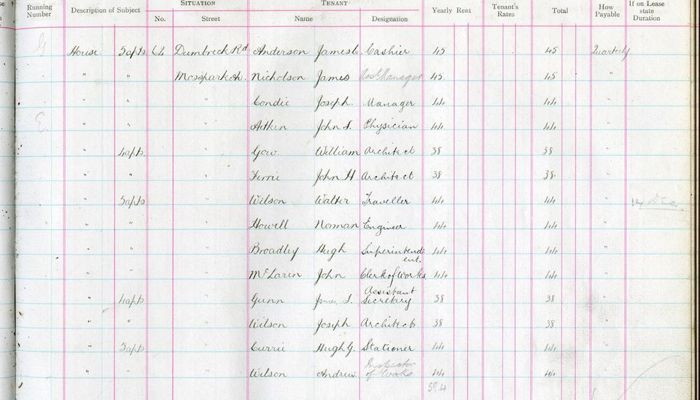 Running Number Description of Subject SITUATION No. Street TENANT Name Designation Yearly Rent Tenant's Rates Total How Payable If on Lease state Duration
House 5apts 64 Dumbreck Rd Anderson James Cashier 45 45 Quarterly
" " Mosspark Nicholson James 45 45 "
" " " Condie Joseph Manager 44 44 "
" " " Aitken John S. Physician 44 44 "
" 4apts " Gow William Architect 38 38 "
" " " Ferrie John H Architect 38 38 "
" 5apts " Wilson Walter Traveller 44 44 "
" " " Howell Norman Engineer 44 44 "
" " " Broadley Hugh Superintendent. 44 44 "
" " " McLaren John Clerk of Works 44 44 "
" 4apts " Gunn James S. Assistant Secretary 38 38 "
" " " Wilson Joseph Architect 38 38 "
" 5apts " Currie Hugh G. Stationer 44 44 "
" " " Wilson Andrew Inspector of Works 44 44 "